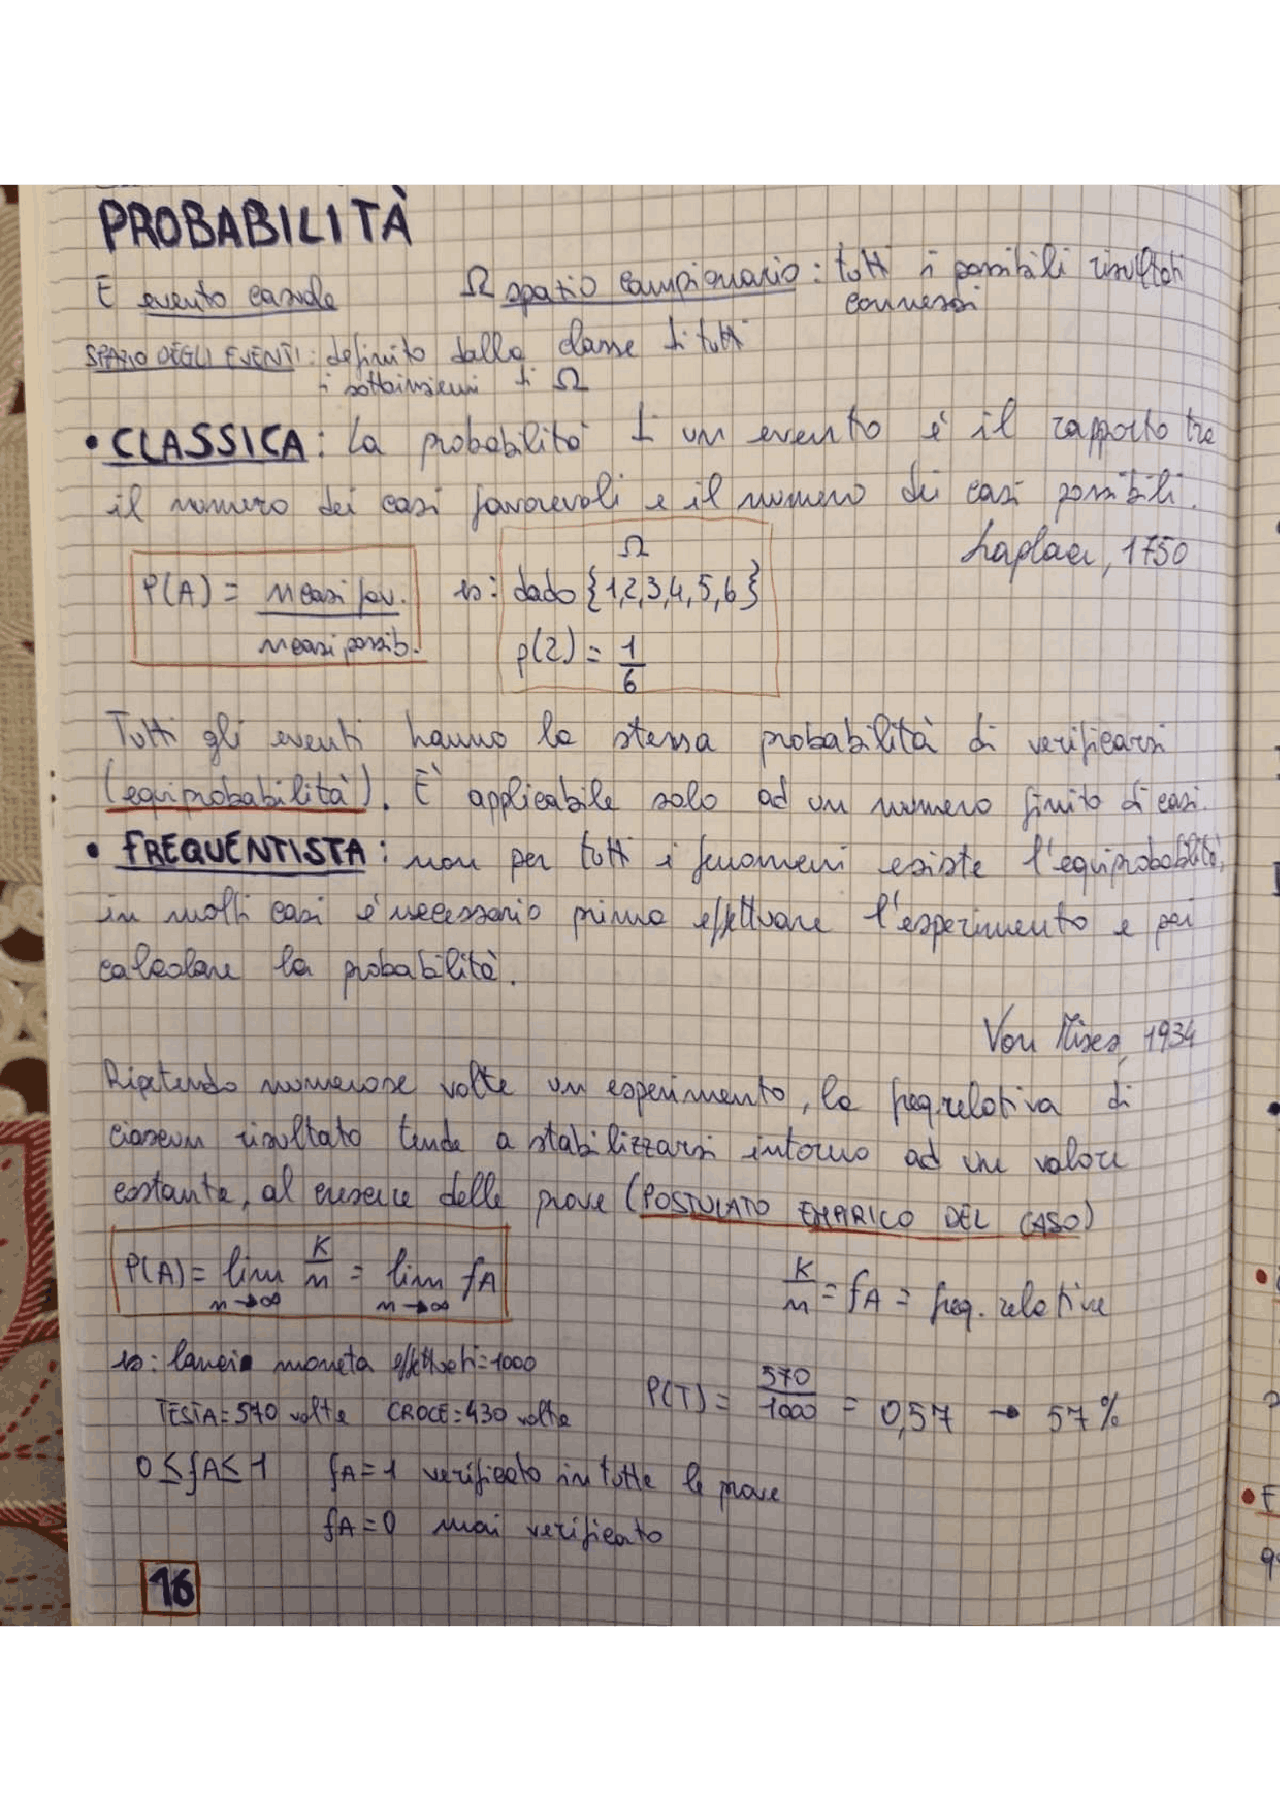 PROBABILITÀ
E evento casuale Ω spazio campionario: tutti i possibili risultati
connessi
SPAZIO DEGLI EVENTI: definito dalla classe di tutti
i sottoinsiemi di Ω
• CLASSICA: La probabilità di un evento è il rapporto tra
il numero dei casi favorevoli e il numero dei casi possibili.
Laplace, 1750
Ω
P(A) = n casi fav. / n casi possib. es: dado {1,2,3,4,5,6}
p(2) = 1/6
Tutti gli eventi hanno la stessa probabilità di verificarsi
(equiprobabilità). È applicabile solo ad un numero finito di casi.
• FREQUENTISTA: non per tutti i fenomeni esiste l'equiprobabilità,
in molti casi è necessario prima effettuare l'esperimento e poi
calcolare la probabilità.
Von Mises, 1934
Ripetendo numerose volte un esperimento, la freq. relativa di
ciascun risultato tende a stabilizzarsi intorno ad un valore
costante, al crescere delle prove (POSTULATO EMPIRICO DEL CASO)
P(A) = lim n→∞ K/n = lim n→∞ fA K/n = fA = freq. relative
es: lancio moneta effettuati=1000
TESTA=570 volte CROCE=430 volte P(T) = 570/1000 = 0,57 → 57%
0 ≤ fA ≤ 1 fA=1 verificato in tutte le prove
fA=0 mai verificato
16